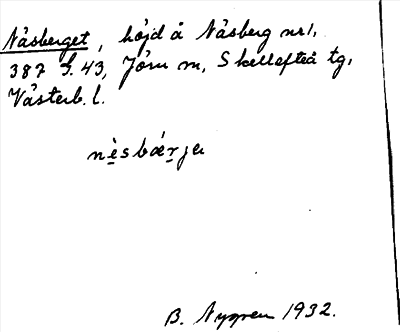 Näsberget, höjd å Näsberg nr 1,
387 S. 43, Jörn sn, Skellefteå tg,
Västerb. l.
nèsbærje
B. Nygren 1932.